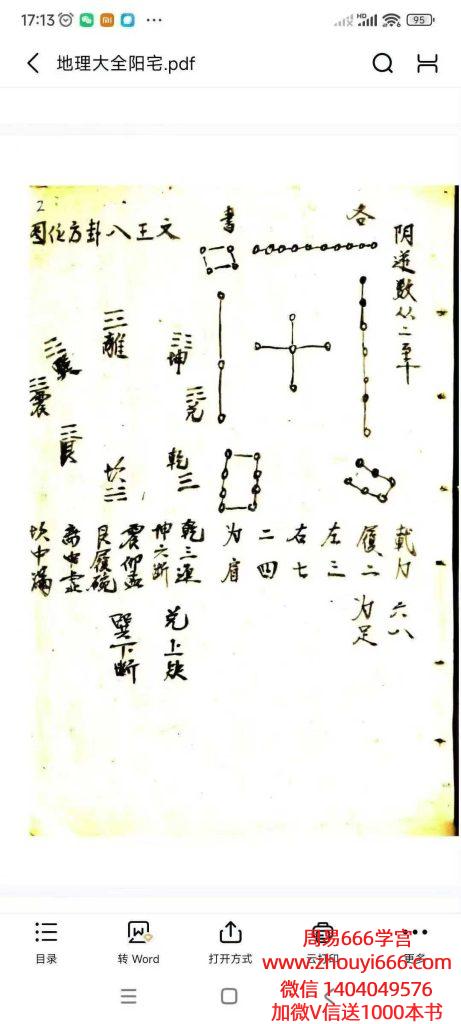 17:13
HD
95
地理大全阳宅.pdf
2
阴逆数从二至十
各
書
文王八卦方位图
離
坤
巽
兑
震
艮
乾
坎
載九
履二
左三
右七
二四
为肩
六八
为足
乾三連
坤六断
震仰盂
艮履碗
离中虚
坎中满
兑上缺
巽下断
目录
转 Word
打开方式
云打印
更多
周易666学宫
www.zhouyi666.com
微信 1404049576
加微V信送1000本书